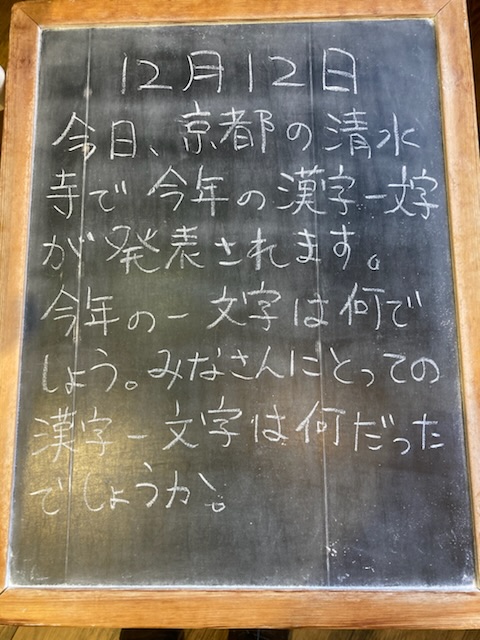 12月12日
今日、京都の清水
寺で今年の漢字一文字
が発表されます。
今年の一文字は何で
しょう。みなさんにとっての
漢字一文字は何だった
でしょうか。